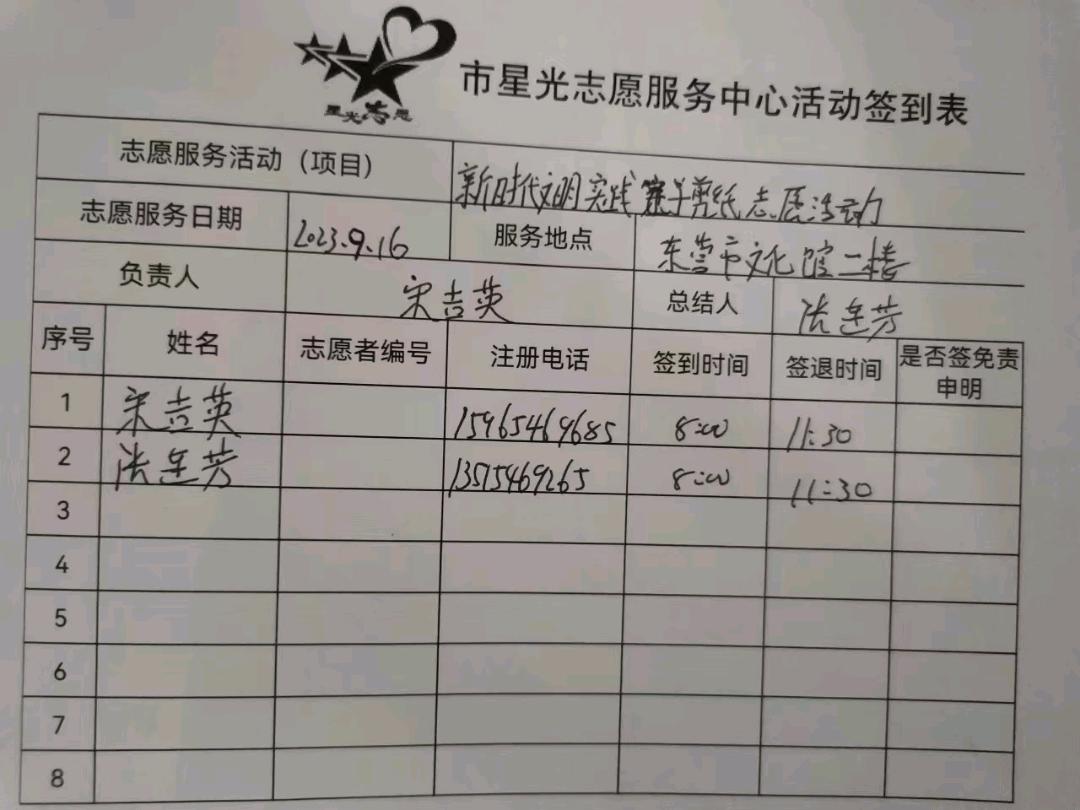 星光志愿
市星光志愿服务中心活动签到表
志愿服务活动（项目） 新时代文明实践 亲子剪纸志愿活动
志愿服务日期 2023.9.16 服务地点 东营市文化馆二楼
负责人 宋吉英 总结人 张连芳
序号 姓名 志愿者编号 注册电话 签到时间 签退时间 是否签免责申明
1 宋吉英 15965469685 8:00 11:30
2 张连芳 13515469265 8:00 11:30
3
4
5
6
7
8